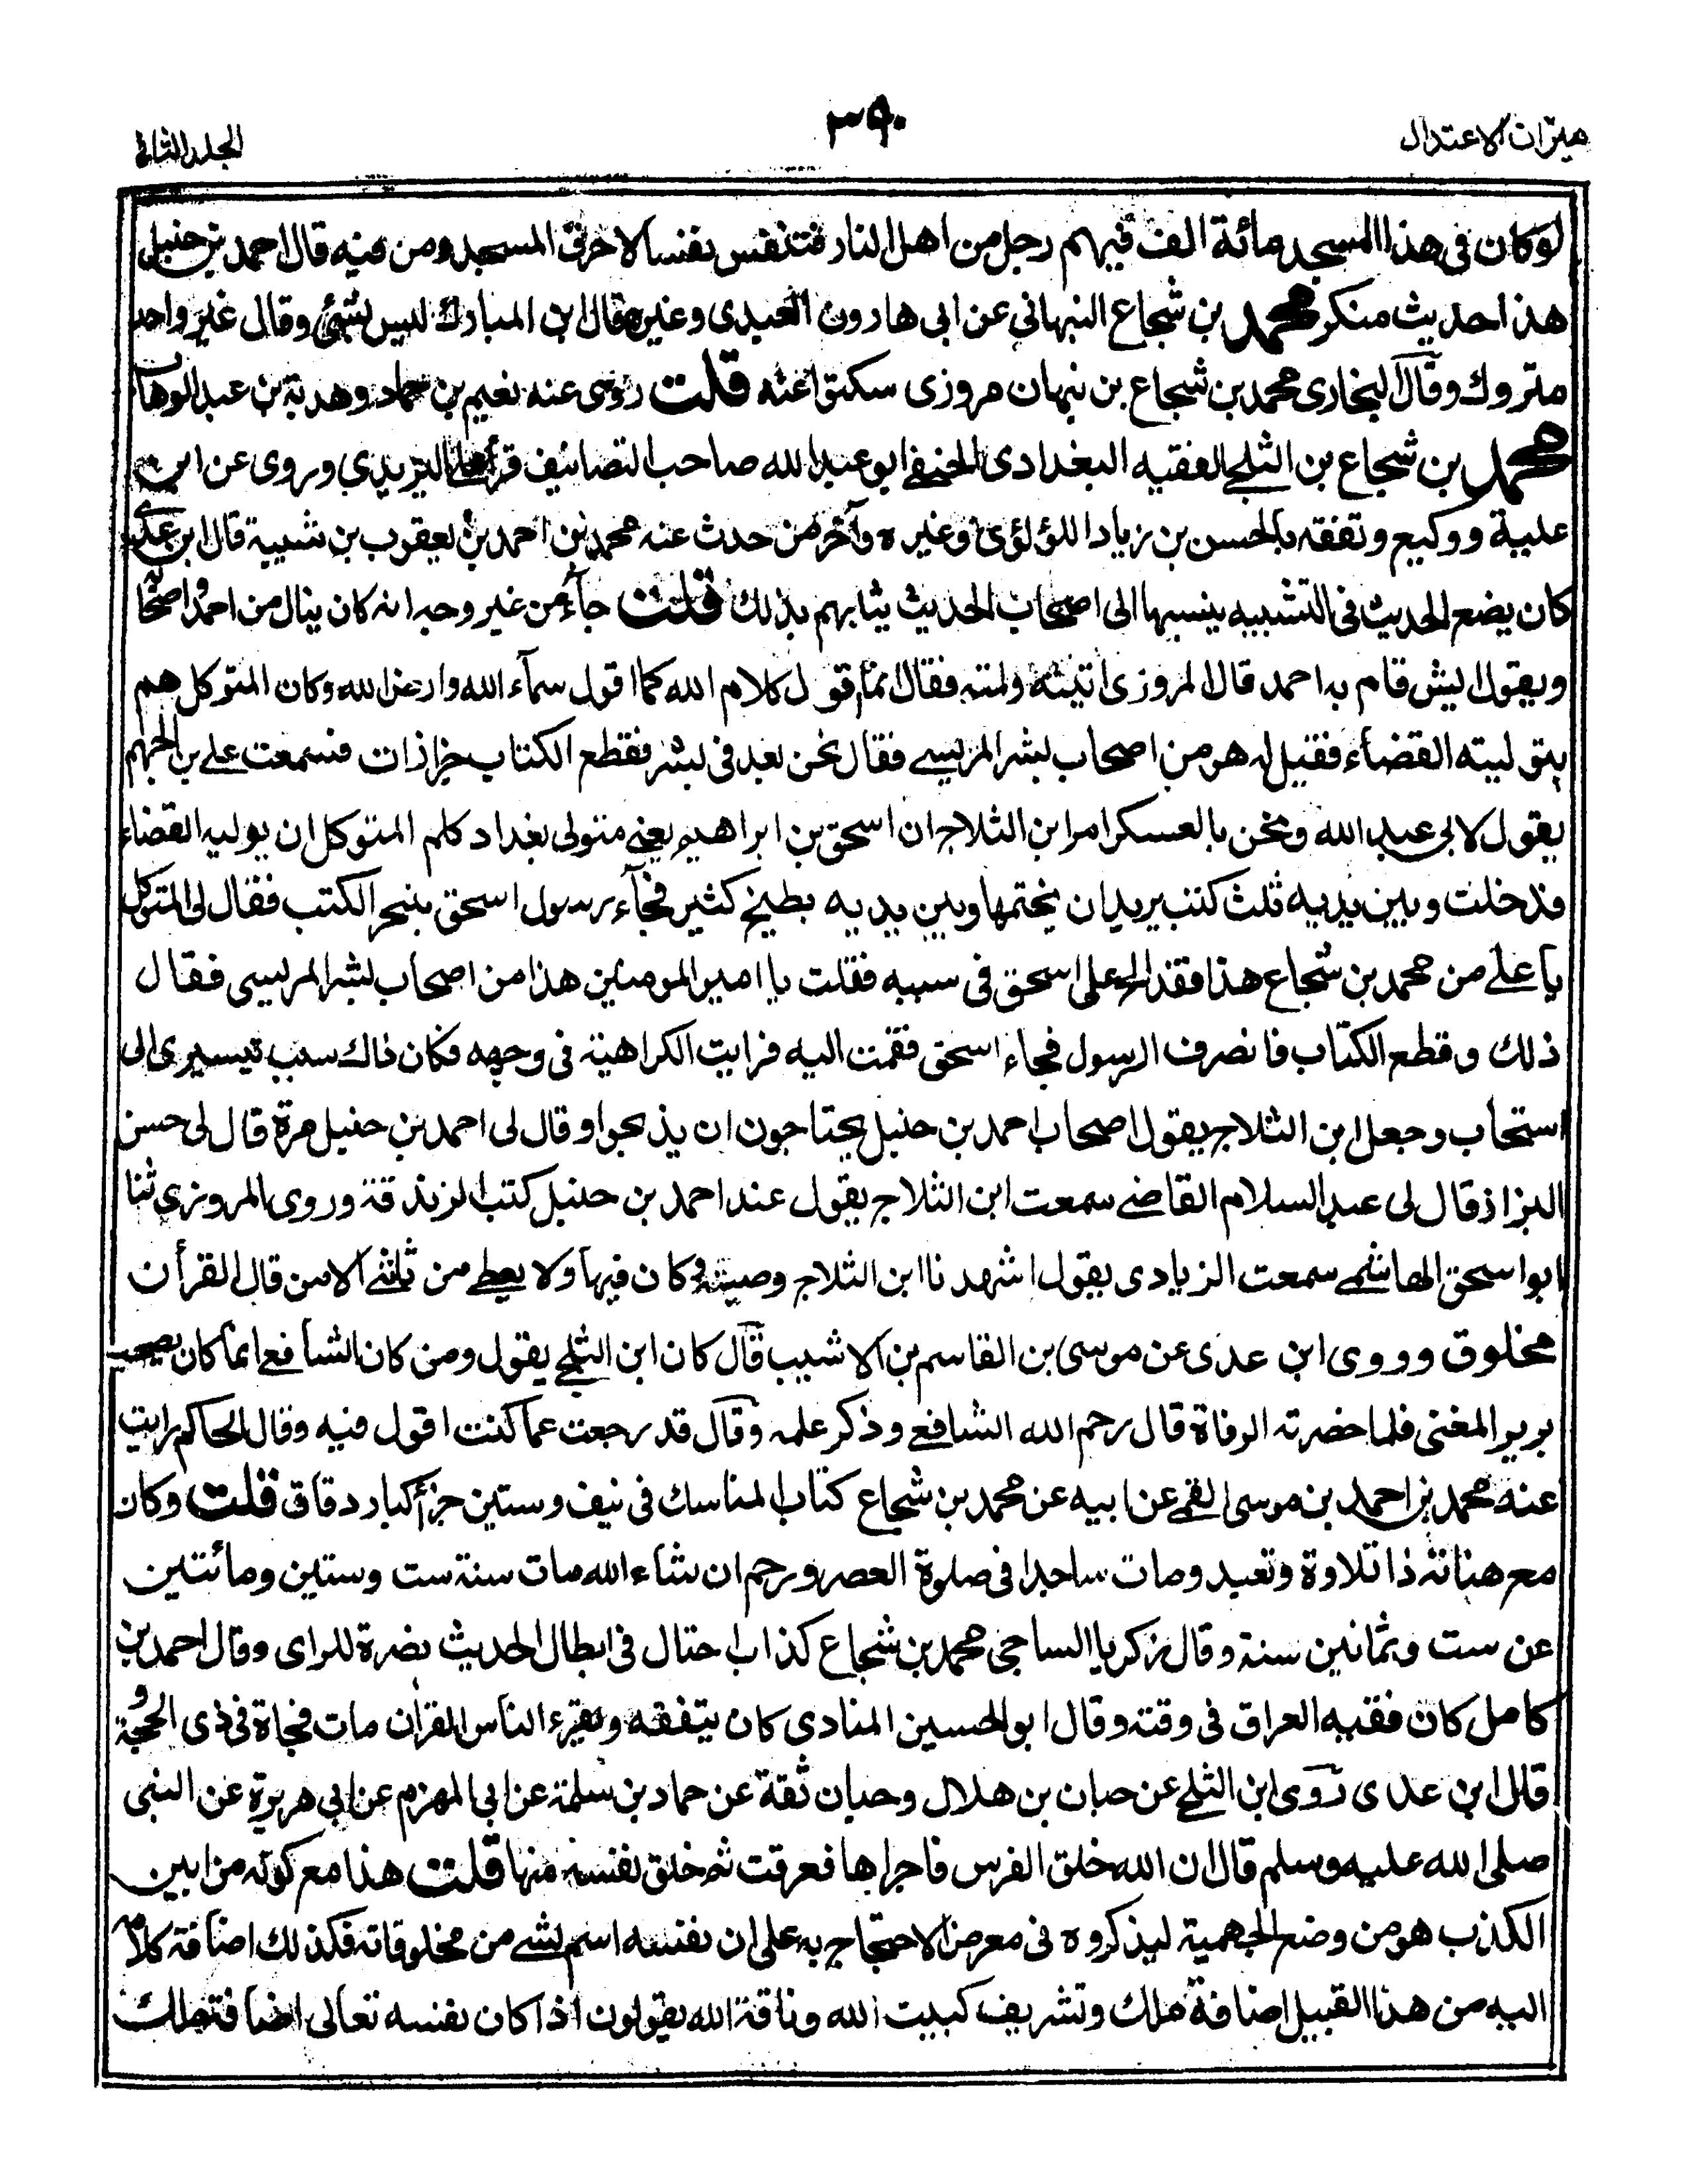 ميزان الاعتدال
٣٩٠
الجلد الثانی
لو كان فى هذا المسجد مائة الف فيهم رجل من اهل النار فتنفس نفسا لاحرق المسجد ومن فيه قال احمد بن حنبل
هذا حديث منكر محمد بن شجاع النبهاني عن ابى هارون العبدى وغيره قال ابن المبارك ليس بشئ وقال غير واحد
متروك وقال البخارى محمد بن شجاع بن نبهان مروزى سكتوا عنه قلت روى عنه نعيم بن حماد وهدبة بن عبد الوهاب
محمد بن شجاع بن الثلجى الفقيه البغدادى الحنفى ابو عبد الله صاحب التصانيف قرأ على اليزيدي وروى عن ابن
علية ووكيع وتفقه بالحسن بن زياد اللؤلؤى وغيره وآخر من حدث عنه محمد بن احمد بن يعقوب بن شيبة قال ابن عدى
كان يضع الحديث فى التشبيه ينسبها الى اصحاب الحديث يثابهم بذلك قلت جاء من غير وجه انه كان ينال من احمد واصحابه
ويقول ايش قام به احمد قال المروزى اتيته ولمته فقال انما اقول كلام الله كما اقول سماء الله وارض الله وكان المتوكل هم
بتوليته القضاء فقيل له هو من اصحاب بشر المريسى فقال نحن بعد فى بشر فقطع الكتاب جزازات فسمعت على بن الجهم
يقول لابى عبد الله ونحن بالعسكر امر ابن الثلاج ان اسحق بن ابراهيم يعنى متولى بغداد كلم المتوكل ان يوليه القضاء
فدخلت وبين يديه ثلث كتب يريد ان يختمها وبين يديه بطيخ كثير فجاء رسول اسحق الكتب فقال لى المتوكل
يا على من محمد بن شجاع هذا فقد الح على اسحق فى سببه فقلت يا امير المومنين هذا من اصحاب بشر المريسى فقال
ذلك وقطع الكتاب فانصرف الرسول فجاء اسحق فقمت اليه فرايت الكراهية فى وجهه فكان ذاك سبب تيسيرى الى
وجعل ابن الثلاج يقول اصحاب احمد بن حنبل يحتاجون ان يذبحوا وقال لى احمد بن حنبل مرة قال لى حسن
البزاز قال لى عبد السلام القاضى سمعت ابن الثلاج يقول عند احمد بن حنبل كتب الزندقة وروى المروزى ثنا
ابو اسحق الهاشمى سمعت الزيادى يقول اشهدنا ابن الثلاج وصيته وكان فيها ولا يعطى من ثلثى الا من قال القرأن
مخلوق وروى ابن عدى عن موسى بن القاسم بن الاشيب قال كان ابن الثلجى يقول ومن كان الشافعى انما كان يصحب
بربر المغنى فلما حضرته الوفاة قال رحم الله الشافعى وذكر علمه وقال قد رجعت عما كنت اقول فيه وقال الحاكم رايت
عنه محمد بن احمد بن موسى القمى عن ابيه عن محمد بن شجاع كتاب المناسك فى نيف وستين جزأ كبار دقاق قلت وكان
مع هناته ذا تلاوة وتعبد ومات ساجدا فى صلوة العصر ورحم ان شاء الله مات سنة ست وستين ومائتين
عن ست وثمانين سنة وقال زكريا الساجى محمد بن شجاع كذاب احتال فى ابطال الحديث نصرة للراى وقال احمد بن
كامل كان فقيه العراق فى وقته وقال ابو الحسين المنادى كان يتفقه ويقرء الناس القران مات فجاة فى ذى الحجة
قال ابن عدى روى ابن الثلجى عن حبان بن هلال وحبان ثقة عن حماد بن سلمة عن ابي المهزم عن ابي هريرة عن النبى
صلى الله عليه وسلم قال ان الله خلق الفرس فاجراها فعرقت ثم خلق نفسه منها قلت هذا مع كونه من ابين
الكذب هو من وضع الجهمية ليذكروه فى معرض الاحتجاج به على ان نفسه اسم لشى من مخلوقاته فكذلك اضافة كلامه
اليه من هذا القبيل اضافة ملك وتشريف كبيت الله وناقة الله يقولون اذا كان نفسه تعالى اضافة ملك